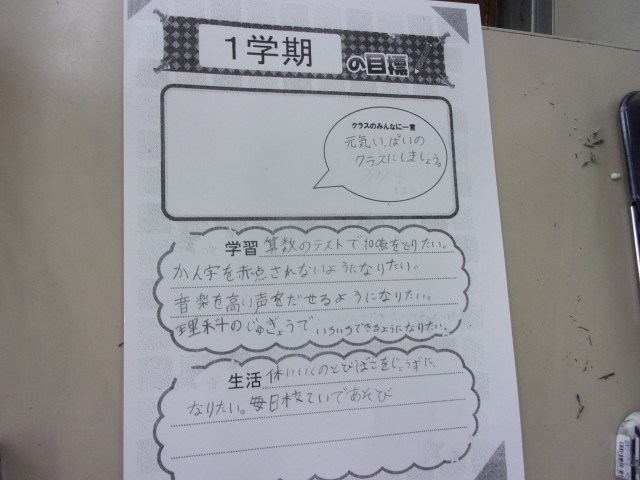 1学期
の目標
クラスのみんなに一言
元気いっぱいの
クラスにしましょう。
学習 算数のテストで100点をとりたい。
かん字を赤点されないようになりたい。
音楽を高い声をだせるようになりたい。
理科のじゅぎょうでいろいろできるようになりたい。
生活 休いくのとびばこをじょうずに、
なりたい。毎日校ていであそび